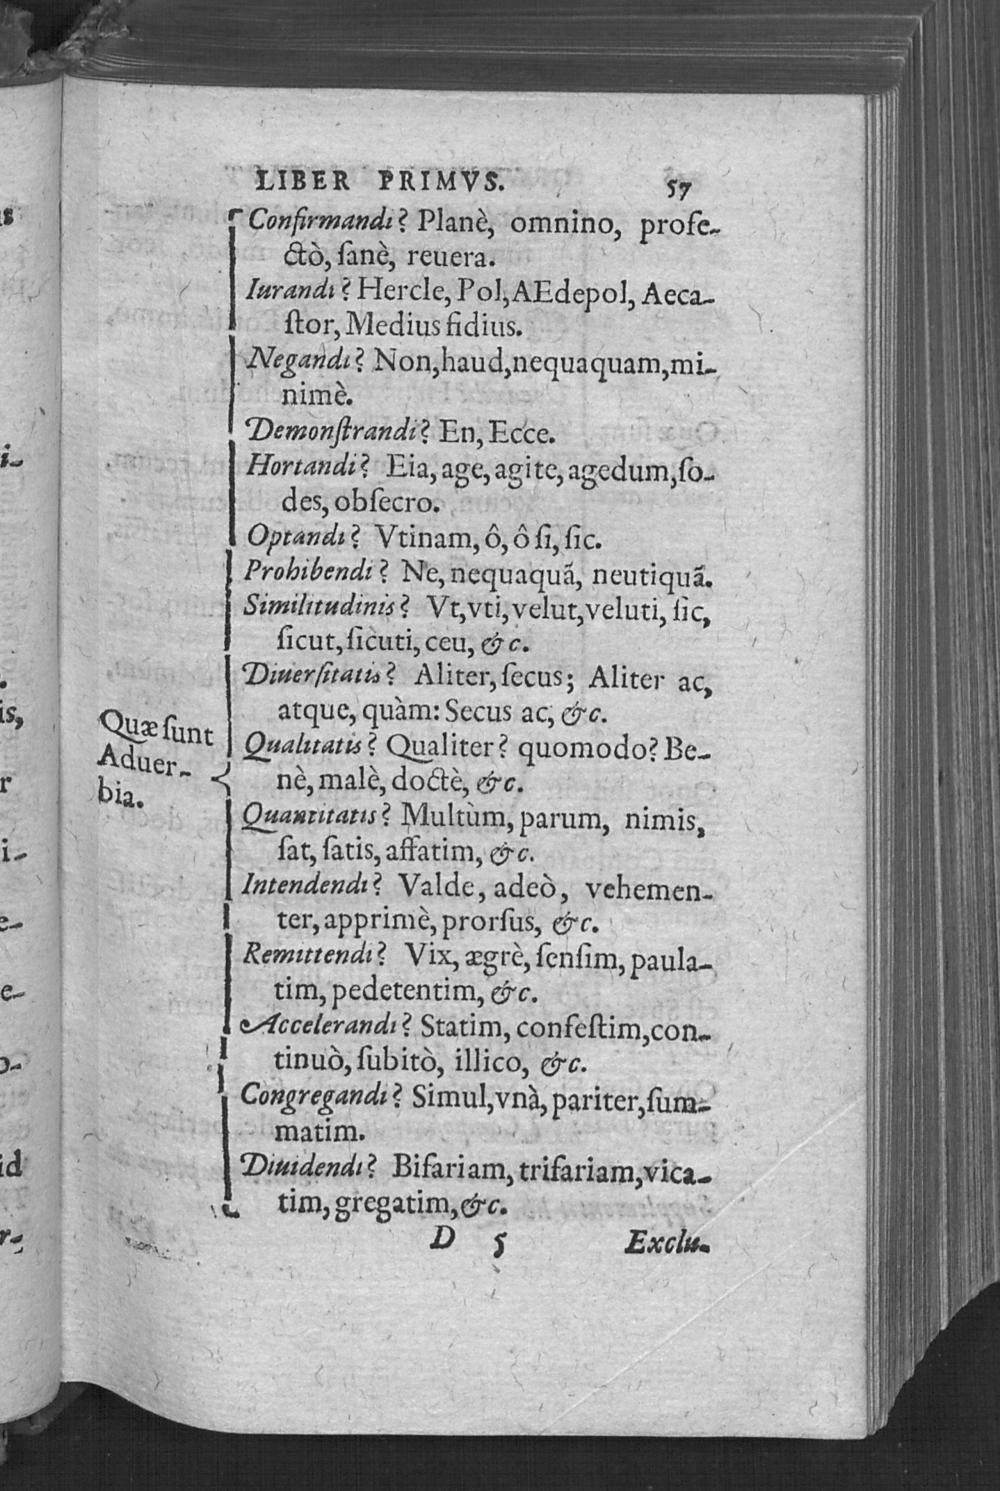 LIBER PRIMVS. 57
Confirmandi? Planè, omnino, profe-
ctò, ſanè, reuera.
Iurandi? Hercle, Pol, AEdepol, Aeca-
ſtor, Medius fidius.
Negandi? Non, haud, nequaquam, mi-
nimè.
Demonſtrandi? En, Ecce.
Hortandi? Eia, age, agite, agedum, ſo-
des, obſecro.
Optandi? Vtinam, ô, ô ſi, ſic.
Prohibendi? Ne, nequaquã, neutiquã.
Similitudinis? Vt, vti, velut, veluti, ſic,
ſicut, ſicuti, ceu, &c.
Diuerſitatis? Aliter, ſecus; Aliter ac,
atque, quàm: Secus ac, &c.
Quæ ſunt
Aduer-
bia.
Qualitatis? Qualiter? quomodo? Be-
nè, malè, doctè, &c.
Quantitatis? Multùm, parum, nimis,
ſat, ſatis, affatim, &c.
Intendendi? Valde, adeò, vehemen-
ter, apprimè, prorſus, &c.
Remittendi? Vix, ægrè, ſenſim, paula-
tim, pedetentim, &c.
Accelerandi? Statim, confeſtim, con-
tinuò, ſubitò, illico, &c.
Congregandi? Simul, vnà, pariter, ſum-
matim.
Diuidendi? Bifariam, trifariam, vica-
tim, gregatim, &c.
D 5 Exclu-